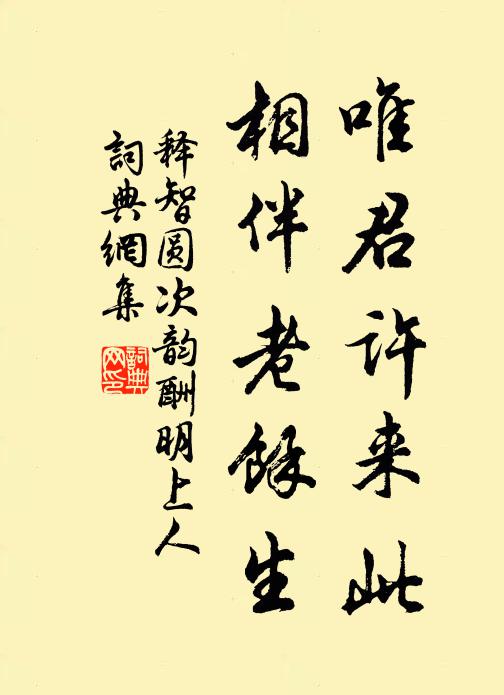 唯君许来此
相伴老餘生
释智圆次韵酬明上人
詞典網集
詞典
网印